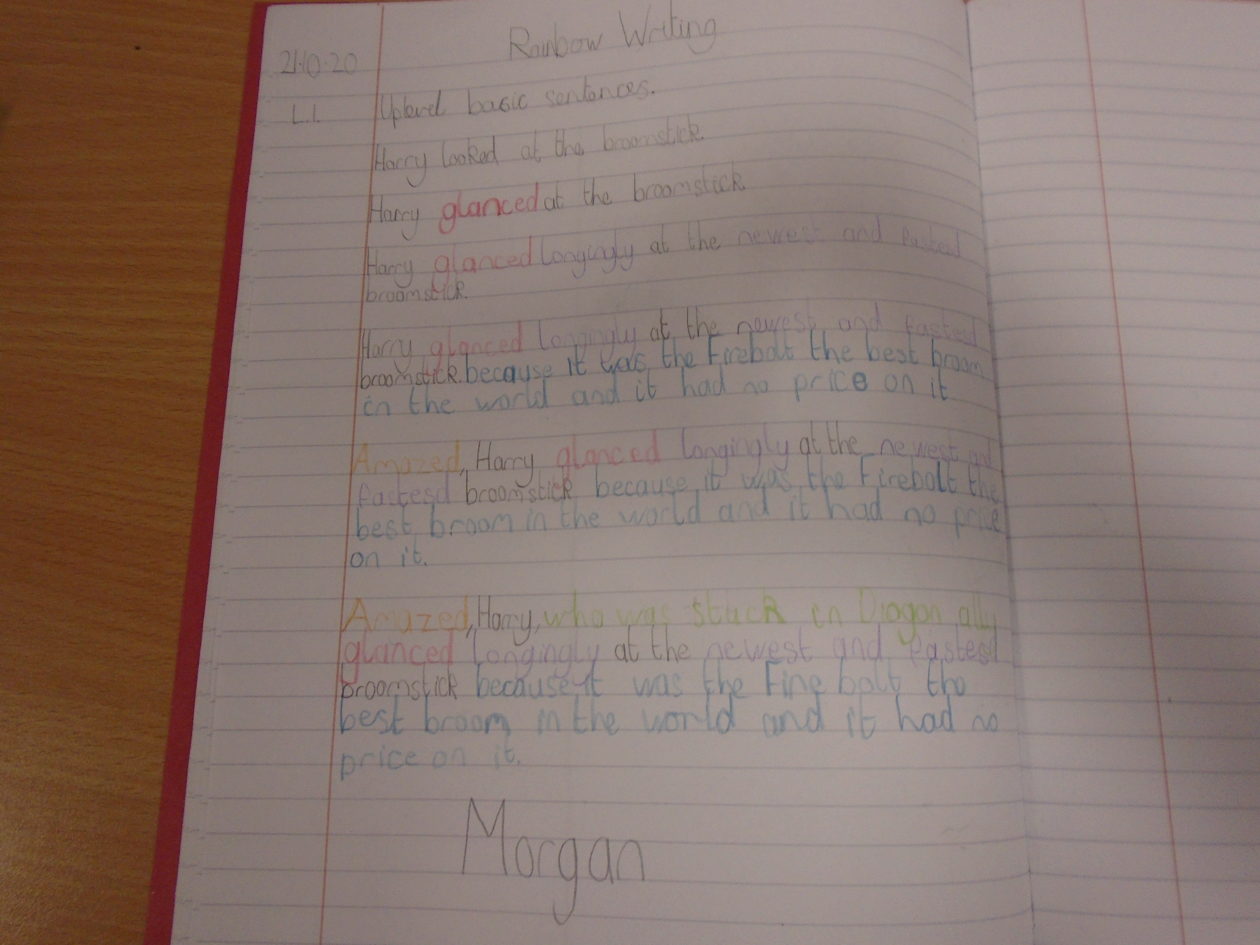 Rainbow Writing
21.10.20
L.I. Uplevel basic sentences.
Harry looked at the broomstick.
Harry glanced at the broomstick.
Harry glanced longingly at the newest and fasted
broomstick.
Harry glanced longingly at the newest and fasted
broomstick.because it was the Firebolt the best broom
in the world and it had no price on it
Amazed, Harry glanced longingly at the newest and
fastesd broomstick because it was the Firebolt the
best broom in the world and it had no price
on it.
Amazed, Harry, who was stuck in Diagon ally
glanced longingly at the newest and fastesd
broomstick because it was the Fire bolt the
best broom in the world and it had no
price on it.
Morgan